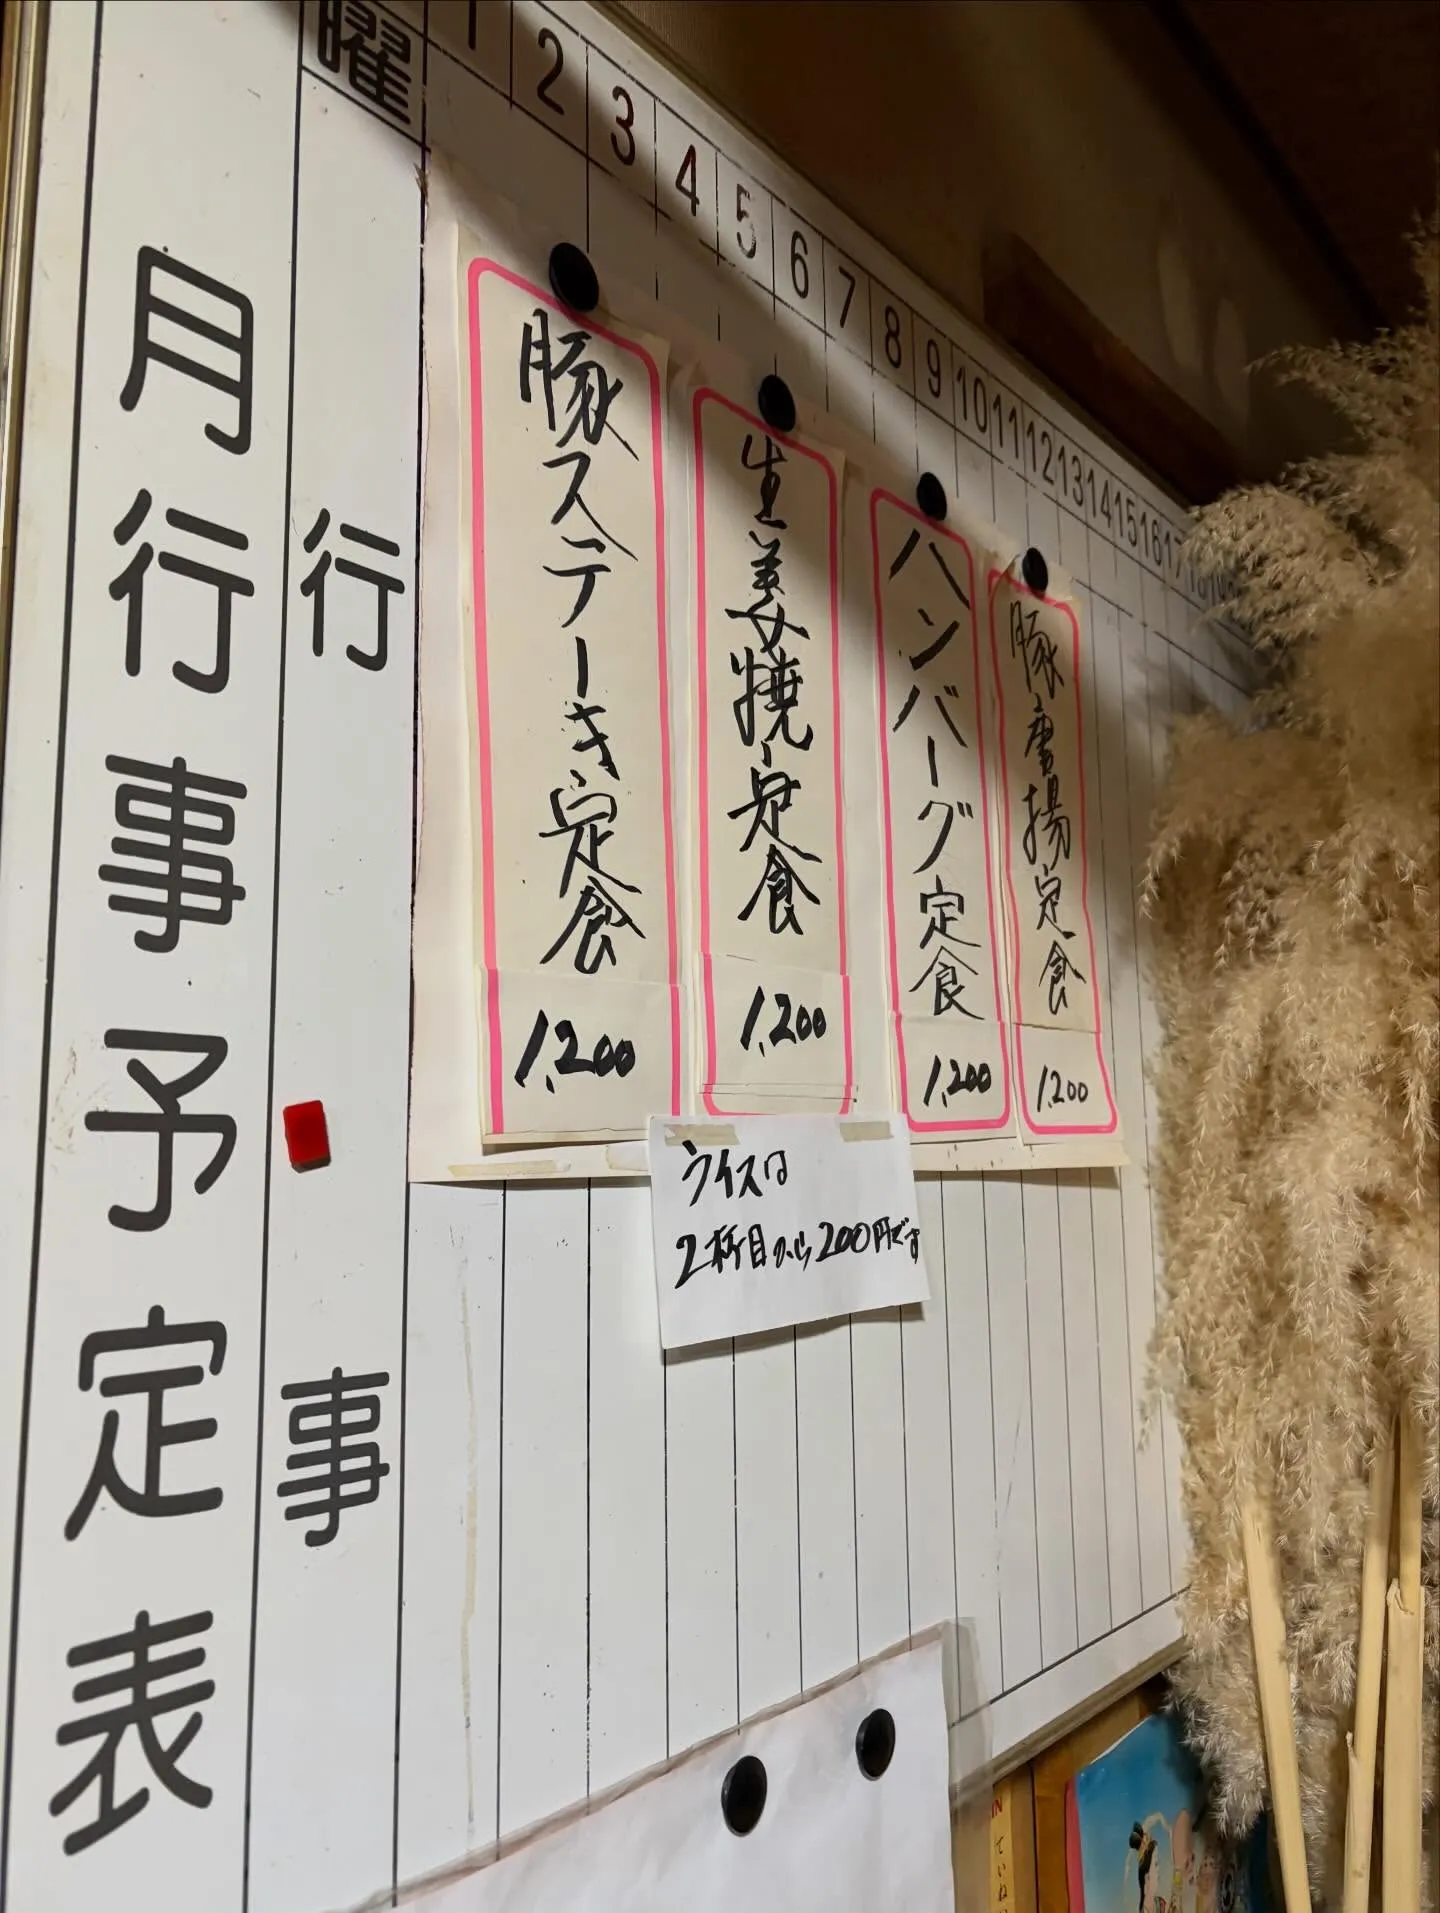 月行事予定表
曜
行事
1 2 3 4 5 6 7 8 9 10 11 12 13 14 15 16 17
豚ステーキ定食
1,200
生姜焼定食
1,200
ハンバーグ定食
1,200
豚唐揚定食
1,200
ライスは
2杯目から200円です
IN
ていね